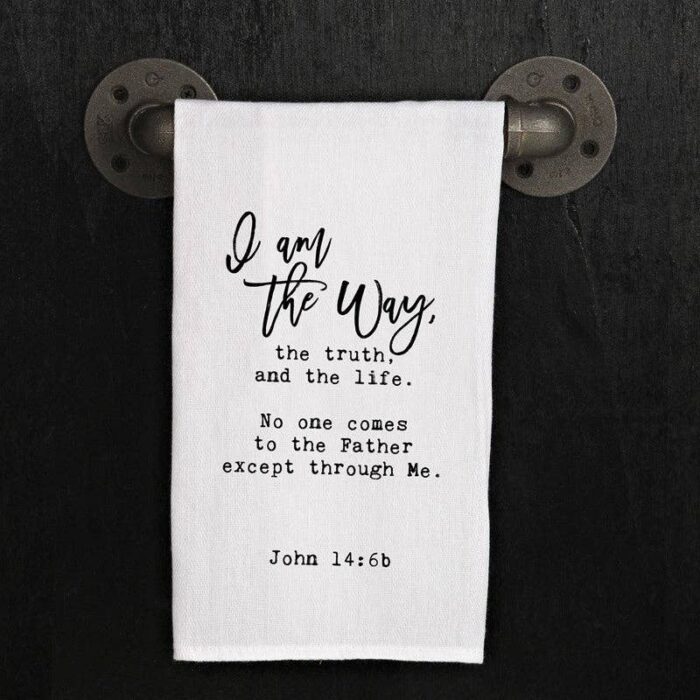 I am
the Way,
the truth,
and the life.
No one comes
to the Father
except through Me.
John 14:6b